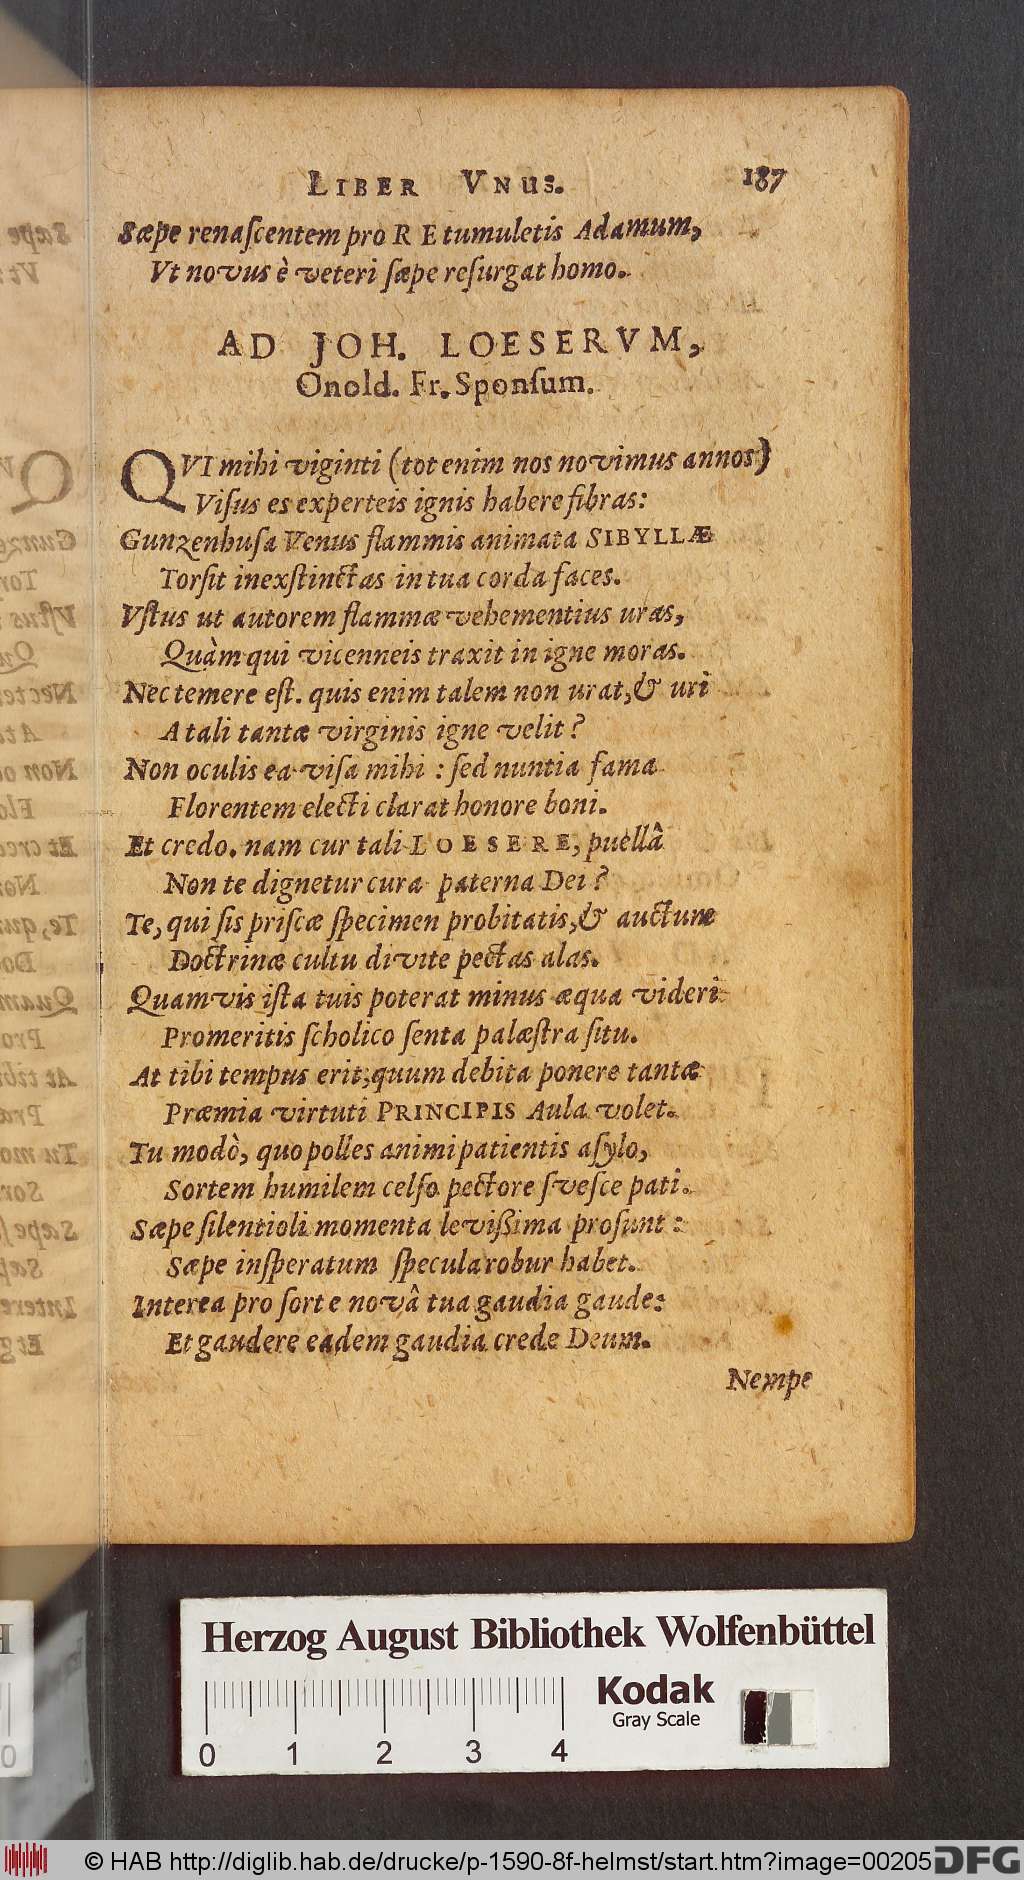 LIBER VNUS. 187
Sæpe renaſcentem pro RE tumuletis Adamum,
Vt novus è veteri ſæpe reſurgat homo.
AD JOH. LOESERVM,
Onold. Fr. Sponſum.
QVI mihi viginti (tot enim nos novimus annos)
Viſus es experteis ignis habere fibras:
Gunzenhuſa Venus flammis animata SIBYLLÆ
Torſit inexſtinctas in tua corda faces.
Vſtus ut autorem flammæ vehementius uras,
Quàm qui vicenneis traxit in igne moras.
Nec temere eſt. quis enim talem non urat, & uri
A tali tantæ virginis igne velit?
Non oculis ea viſa mihi: ſed nuntia fama
Florentem electi clarat honore boni.
Et credo. nam cur tali LOESERE, puellâ
Non te dignetur cura paterna Dei?
Te, qui ſis priſcæ ſpecimen probitatis, & auctum
Doctrinæ cultu divite pectas alas.
Quamvis iſta tuis poterat minus æqua videri
Promeritis ſcholico ſenta palæſtra ſitu.
At tibi tempus erit, quum debita ponere tantæ
Præmia virtuti PRINCIPIS Aula volet.
Tu modò, quo polles animi patientis aſylo,
Sortem humilem celſo pectore ſveſce pati.
Sæpe ſilentioli momenta leviſſima proſunt:
Sæpe inſperatum ſpecula robur habet.
Interea pro ſorte novâ tua gaudia gaude:
Et gaudere eadem gaudia crede Deum.
Nempe
Herzog August Bibliothek Wolfenbüttel
Kodak
Gray Scale
0 1 2 3 4
© HAB http://diglib.hab.de/drucke/p-1590-8f-helmst/start.htm?image=00205 DFG